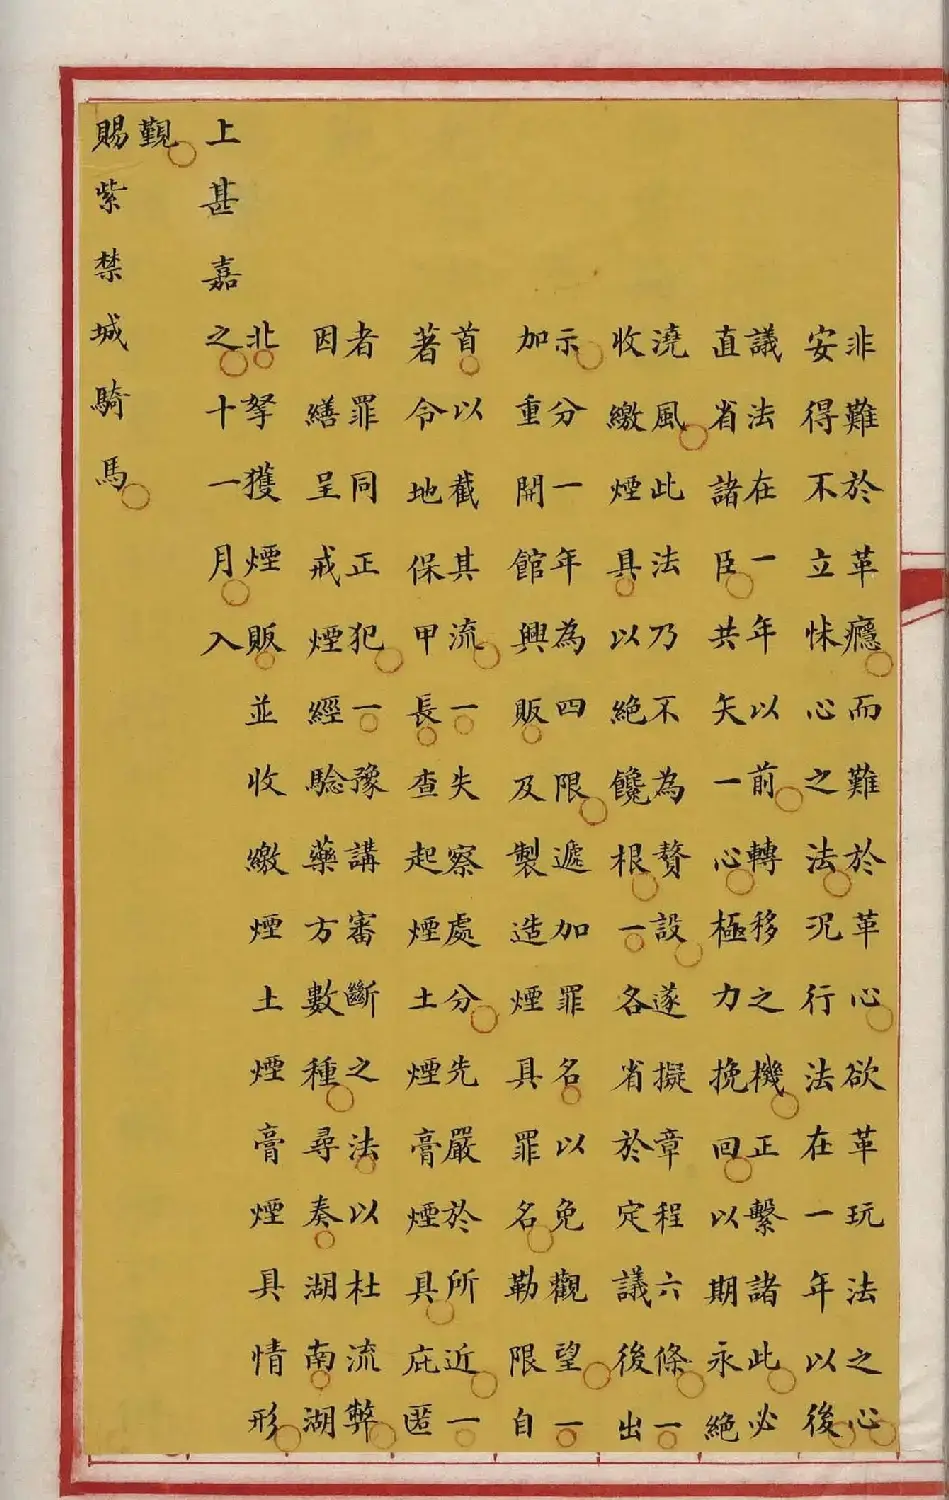 非難於革癮而難於革心欲革玩法之心
安得不立怵心之法况行法在一年以後
議法在一年以前轉移之機正繫諸此必
直省諸臣共矢一心極力挽回以期永絕
澆風此法乃不為贅設遂擬章程六條一
收繳煙具以絕饞根一各省於定議後出
示分一年為四限遞加罪名以免觀望一
加重開館興販及製造煙具罪名勒限自
首以截其流一失察處分先嚴於所近一
著令地保甲長查起煙土煙膏煙具庇匿
者罪同正犯一豫講審斷之法以杜流弊
因繕呈戒煙經驗藥方數種尋奏湖南湖
北拏獲煙販並收繳煙土煙膏煙具情形
上甚嘉之十一月入
覲
賜紫禁城騎馬